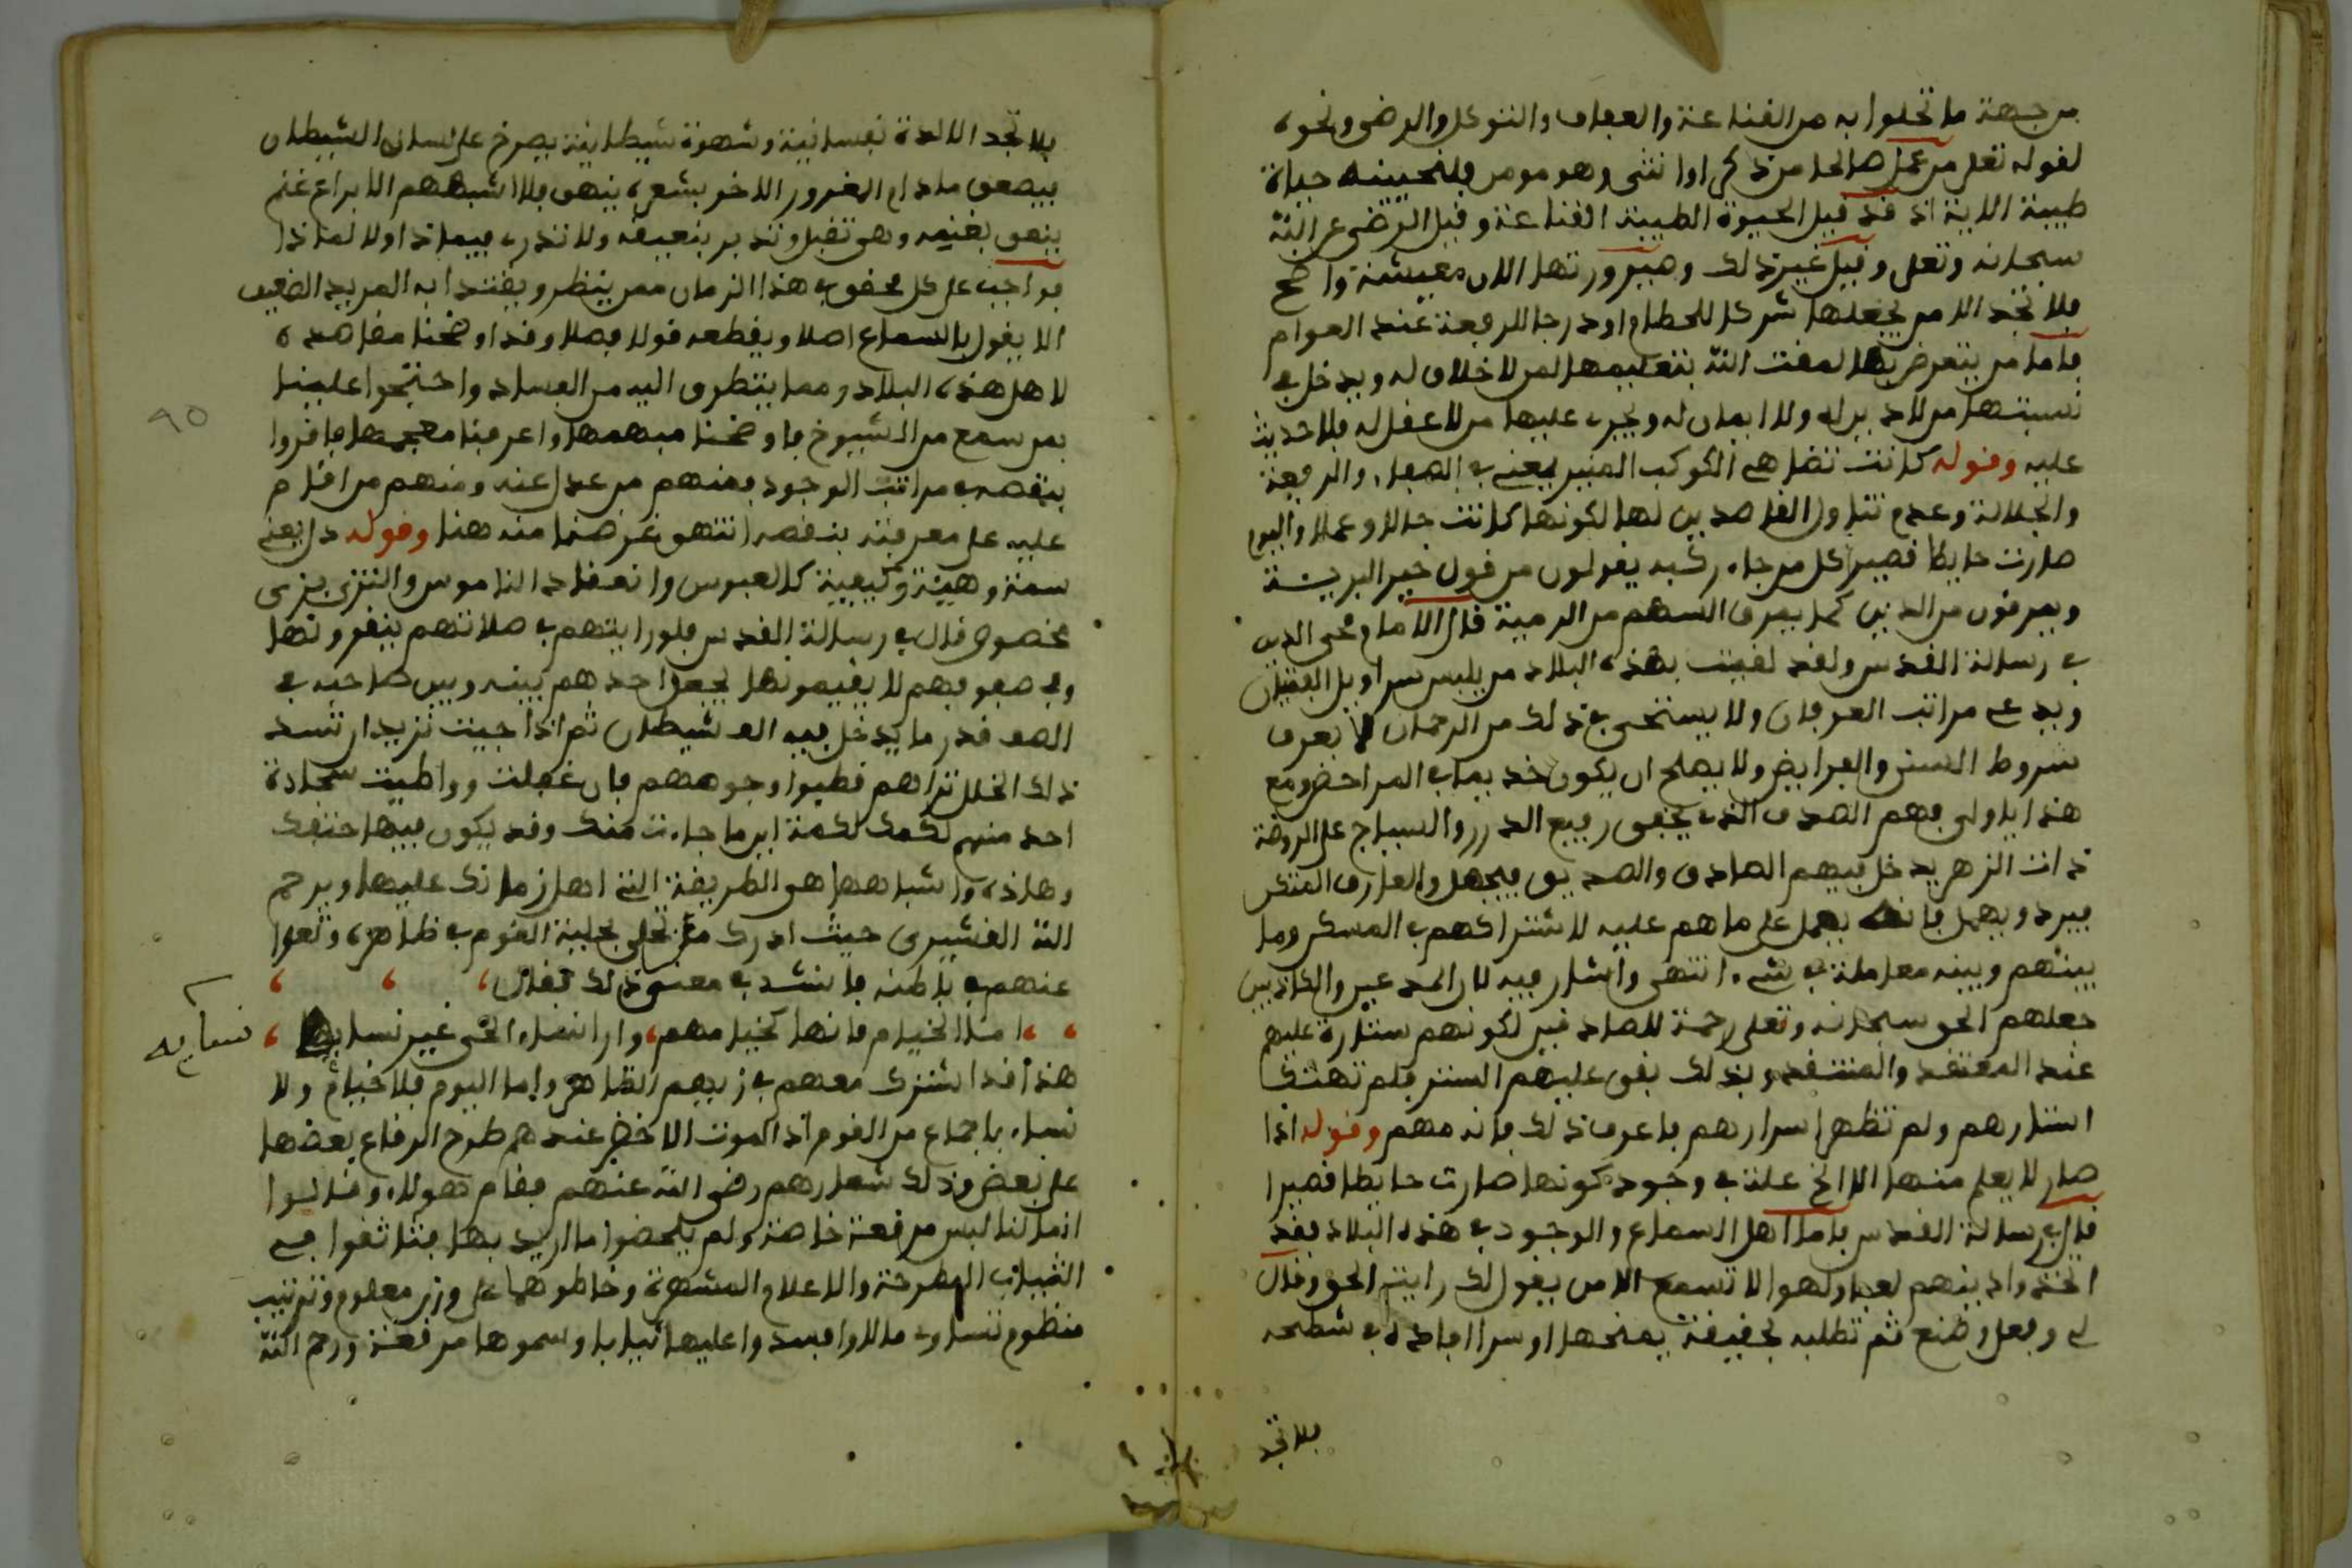 من جهة ما تحلوا به من القناعة والعفاف والتوكل والرضى ونحوه
لقوله تعلى من عمل صالحا من ذكر او انثى وهو مومن فلنحيينه حياة
طيبة الاية اذ قد قيل الحيوة الطيبة القناعة وقيل الرضى عن الله
سبحانه وتعلى وقيل غير ذلك وصيرورتها الان معيشة واضح
فلا تجد الا من يجعلها شركا للحطام او درجا للرفعة عند العوام
فاما من يتعرض بها لمقت الله بتعليمها لمن لا خلاق له ويدخل في
نسبتها من لا دين له ولا ايمان له ويجرى عليها من لا عقل له فلا حديث
عليه وقوله كانت تضاهى الكوكب المنير يعنى في الصفا، والرفعة
والجلالة وعدم تناول القاصدين لها لكونها كانت حالا وعملا واليوم
صارت حايطا قصير كل من جا، ركبه يقولون من قول خير البرية
ويمرقون من الدين كما يمرق السهم من الرمية قال الامام محي الدين
في رسالة القدس ولقد لقيت بهذه البلاد من يلبس سراويل الفتيان
ويدعى مراتب العرفان ولا يستحي في ذلك من الرحمان لا يعرف
شروط السنن والفرايض ولا يصلح ان يكون خديما في المراحض ومع
هذا ياولى فهم الصدف الذى يخفى رفيع الدرر والسياج على الروضة
ذات الزهر يدخل فيهم الصادق والصديق فيجهل والعارف المتكن
فيرد ويهمل فانه يعمل على ما هم عليه لاشتراكهم في المسكن وما
بينهم وبينه معاملة في شى، انتهى واشار فيه لان المدعين والكاذبين
جعلهم الحق سبحانه وتعلى رحمة للصادقين لكونهم ستارة عليهم
عند المعتقد والمنتقد وبذلك بقى عليهم الستر فلم تهتك
استارهم ولم تظهر اسرارهم فاعرف ذلك فانه مهم وقوله اذا
صار لا يعلم منها الا الخ علة في وجود كونها صارت حايطا قصيرا
قال في رسالة القدس فاما اهل السماع والوجود في هذه البلاد فقد
اتخذوا دينهم لعبا ولهوا لا تسمع الا من يقول لك رايت الحق وقال
لى وفعل وصنع ثم تطلبه بحقيقة يمنحها او سر افاده في شطحه
فلا تجد
فلا تجد الا لذة نفسانية وشهوة شيطانية يصرخ على لسان الشيطان
فيصعق مادام المغرور الاخر بشعره ينهق فلا اشبههم الا براع غنم
ينعق بغنمه وهى تقبل وتدبر بنعيقه ولا تدرى فيماذا ولا لماذا
فواجب على كل محقق في هذا الزمان ممن ينظر ويقتدا به المريد الضعيف
الا يقول بالسماع اصلا ويقطعه قولا فصلا وقد اوضحنا مقاصده
لاهل هذه البلاد ومما يتطرق اليه من الفساد واحتجوا علينا
بمن سمع من الشيوخ فاوضحنا مبهمها واعربنا معجمها فاقروا
بنقصه في مراتب الوجود فمنهم من عدل عنه ومنهم من اقام
عليه على معرفته بنقصه انتهى غرضنا منه هنا وقوله دل يعنى
سمة وهيئة وكيفية كالعبوس وانعقاد الناموس والتزى بزى
مخصوص قال في رسالة القدس فلو رايتهم في صلاتهم ينقرونها
وفي صفوفهم لا يقيمونها يجعل احدهم بينه وبين صاحبه في
الصف قدر ما يدخل فيه الف شيطان ثم اذا جيت تريد ان تسد
ذلك الخلل تراهم قطبوا وجوههم فان غفلت ووطيت سجادة
احد منهم لكمك لكمة اين ما جاءت منك وقد يكون فيها حتفك
وهاذه واشباهها هى الطريقة التى اهل زمانك عليها ويرحم
الله القشيرى حيث ادرك من تحلى بحلية القوم في ظاهره وتعرا
عنهم في باطنه فانشد في معنى ذلك فقال،
، اما الخيام فانها كخيامهم، وارا نساء الحي غير نسايها ،
نسايه
هذا قد اشترك معهم في زيهم الظاهر واما اليوم فلا خيام ولا
نساء باجماع من القوم اذ الموت الاخضر عندهم طرح الرقاع بعضها
على بعض وذلك شعارهم رضى الله عنهم فقام هولاء وقالوا
انما لنا لبس مرقعة خاصة ولم يلحضوا ما اريد بها فتانقوا في
الثياب المطرحة والاعلام المشهرة وخاطوهما على وزن معلوم وترتيب
منظوم تساوى مالا وافسدوا عليها ثيابا وسموها مرقعة ورحم الله